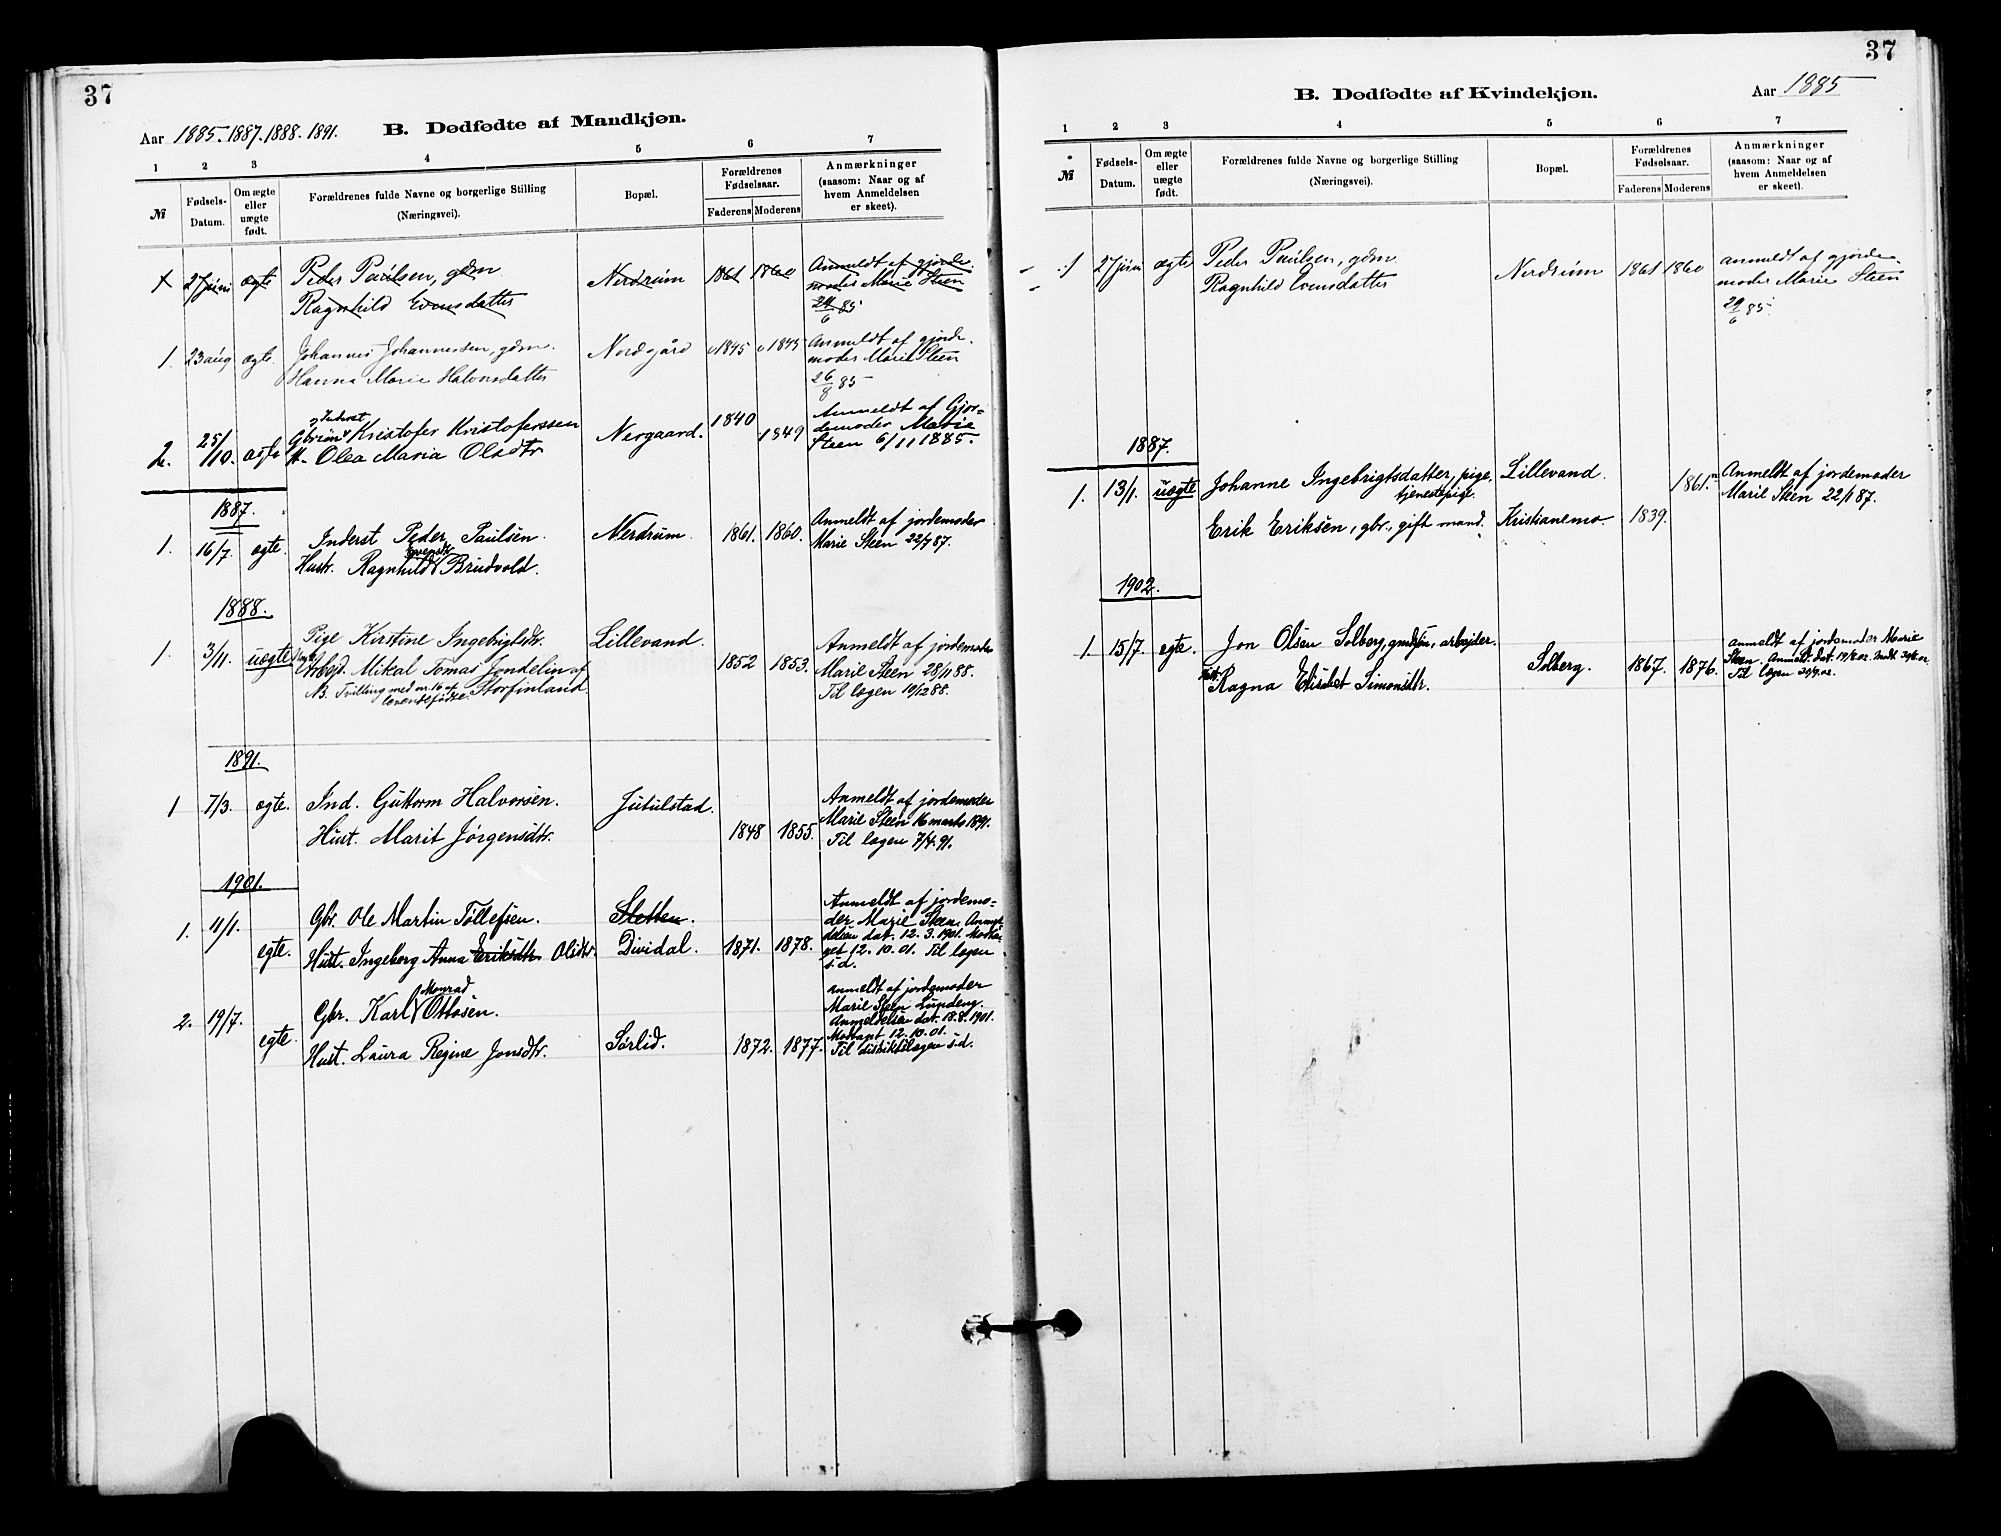 37
Aar 1885. 1887. 1888. 1891. B. Dødfødte af Mandkjøn.
1 2 3 4 5 6 7
№ Fødsels-Datum. Om ægte eller uægte født. Forældrenes fulde Navne og borgerlige Stilling (Næringsvei). Bopæl. Forældrenes Fødselsaar. Faderens Moderens Anmærkninger (saasom: Naar og af hvem Anmeldelsen er skeet).
1 27 juni ægte Peder Paulsen, gdm Nerdrum 1861 1860 Anmeldt af gjorde-
Ragnhild Evensdatter moder Marie Steen
29/6 85
1. 23 aug ægte Johannes Johannessen, gdm. Nordgård 1845 1845 Anmeldt af gjorde-
Hanna Marie Halvorsdatter moder Marie Steen
26/8 85
2. 25/10. ægte Inderst Kristofer Kristoferssen Nergaard. 1840 1849 Anmeldt af Gjor-
Olea Maria Olsdtr demoder Marie
Steen 6/11 1885.
1887.
1. 16/7 ægte. Inderst Peder Paulsen. Nerdrum. 1861. 1860. Anmeldt af jordemoder
Hustr. Ragnhild Evensdt Brudvold. Marie Steen 22/7 87.
1888.
1. 3/11. uægte Pige Kirstine Ingebrigtsdtr. Lillevand. 1852 1853. Anmeldt af jordemoder
Arbeid. Mikal Tomas Jondelin af Marie Steen 28/11 88.
NB. Tvilling med nr. 16 af levendefødte. Storfinland. Til lægen 10/12 88.
1891.
1 7/3. ægte. Ind. Guttorm Halvorsen. Jutulstad. 1848 1855. Anmeldt af jordemoder
Hust. Marit Jørgensdtr. Marie Steen 16 marts 1891.
Til lægen 7/4. 91.
1901.
1. 11/1. egte. Gbr. Ole Martin Tollefsen. Sletten. Anmeldt af jordemo-
Hust. Ingeborg Anna Eriksdtr. Olsdtr. Dividal. 1871. 1878. der Marie Steen. Anmel-
delsen dat. 12. 3. 1901. Modta-
get 12. 10. 01. Til lægen
s. d.
2. 19/7. egte. Gbr. Karl Monrad Ottosen. Anmeldt af jordemoder
Hust. Laura Regine Jonsdtr. Sørlid. 1872. 1877. Marie Steen Lundeng.
Anmeldelsen dat. 18. 8. 1901.
Modtaget 12. 10. 01.
Til distriktslægen s. d.
37
B. Dødfødte af Kvindekjøn. Aar 1885
1 2 3 4 5 6 7
№ Fødsels-Datum. Om ægte eller uægte født. Forældrenes fulde Navne og borgerlige Stilling (Næringsvei). Bopæl. Forældrenes Fødselsaar. Faderens Moderens Anmærkninger (saasom: Naar og af hvem Anmeldelsen er skeet).
1 27 juni ægte Peder Paulsen, gdm. Nerdrum 1861 1860 anmeldt af gjorde-
Ragnhild Evensdatter moder Marie Steen
29/6 85
1887.
1. 13/1. uægte Johanne Ingebrigtsdatter, pige, tjenestepige. Lillevand. 1861. Anmeldt af jordemoder
Erik Eriksen, gbr., gift mand. Kristianemo. 1839. Marie Steen 22/1 87.
1902.
1. 15/7. egte. Jon Olsen Solberg, gmdsøn, arbeider. Anmeldt af jordemoder Marie
Ragna Elisabet Simonsdtr. Solberg. 1867. 1876. Steen. Anmeld. dat. 19/8 02.
Til lægen